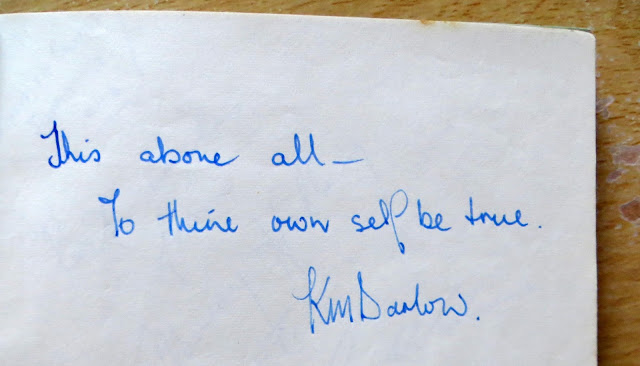 This above all —
To thine own self be true.
KM Barlow.